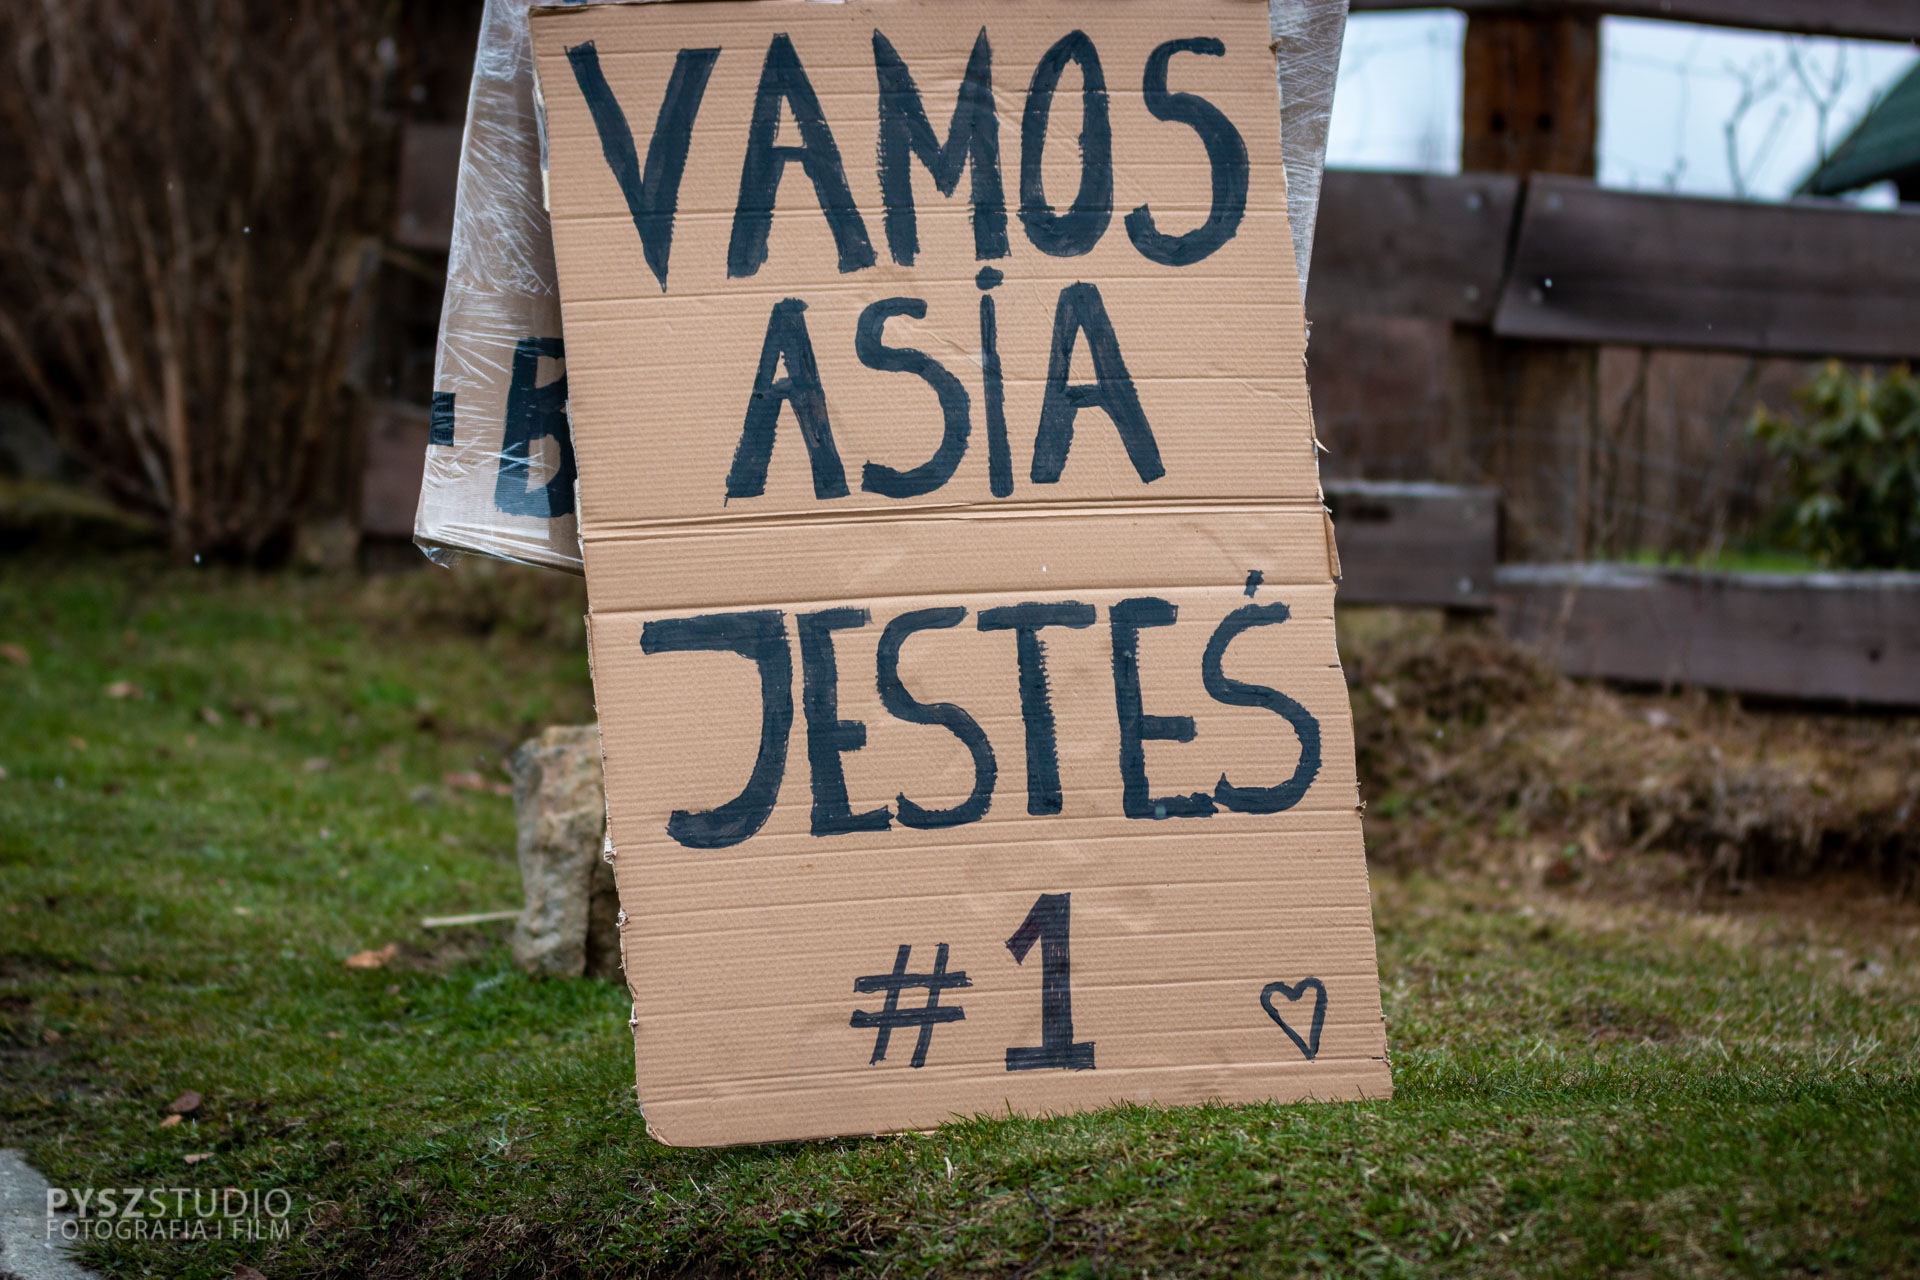 VAMOS
ASiA
JESTEŚ
#1 ♡
PYSZSTUDIO
FOTOGRAFIA I FILM